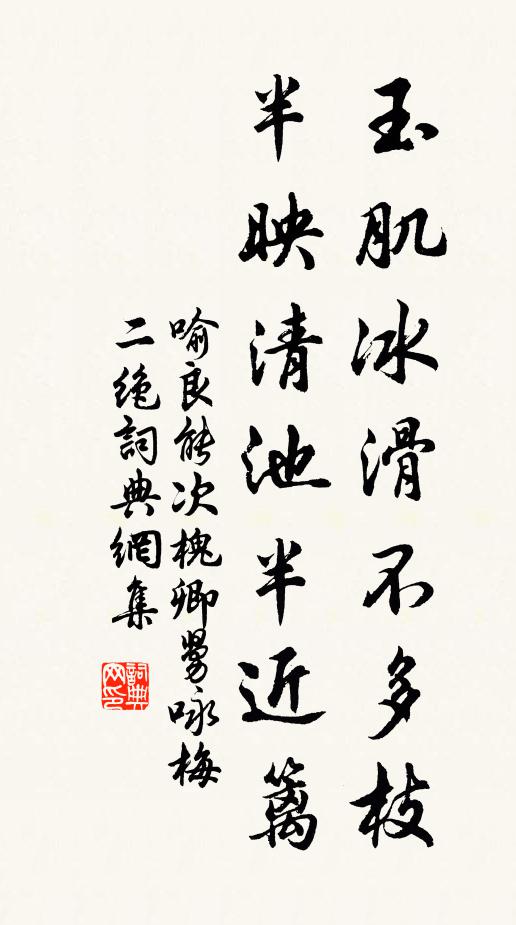 玉肌冰滑不多枝
半映清池半近篱
喻良能次槐卿舅咏梅
二绝詞典網集
詞典网印